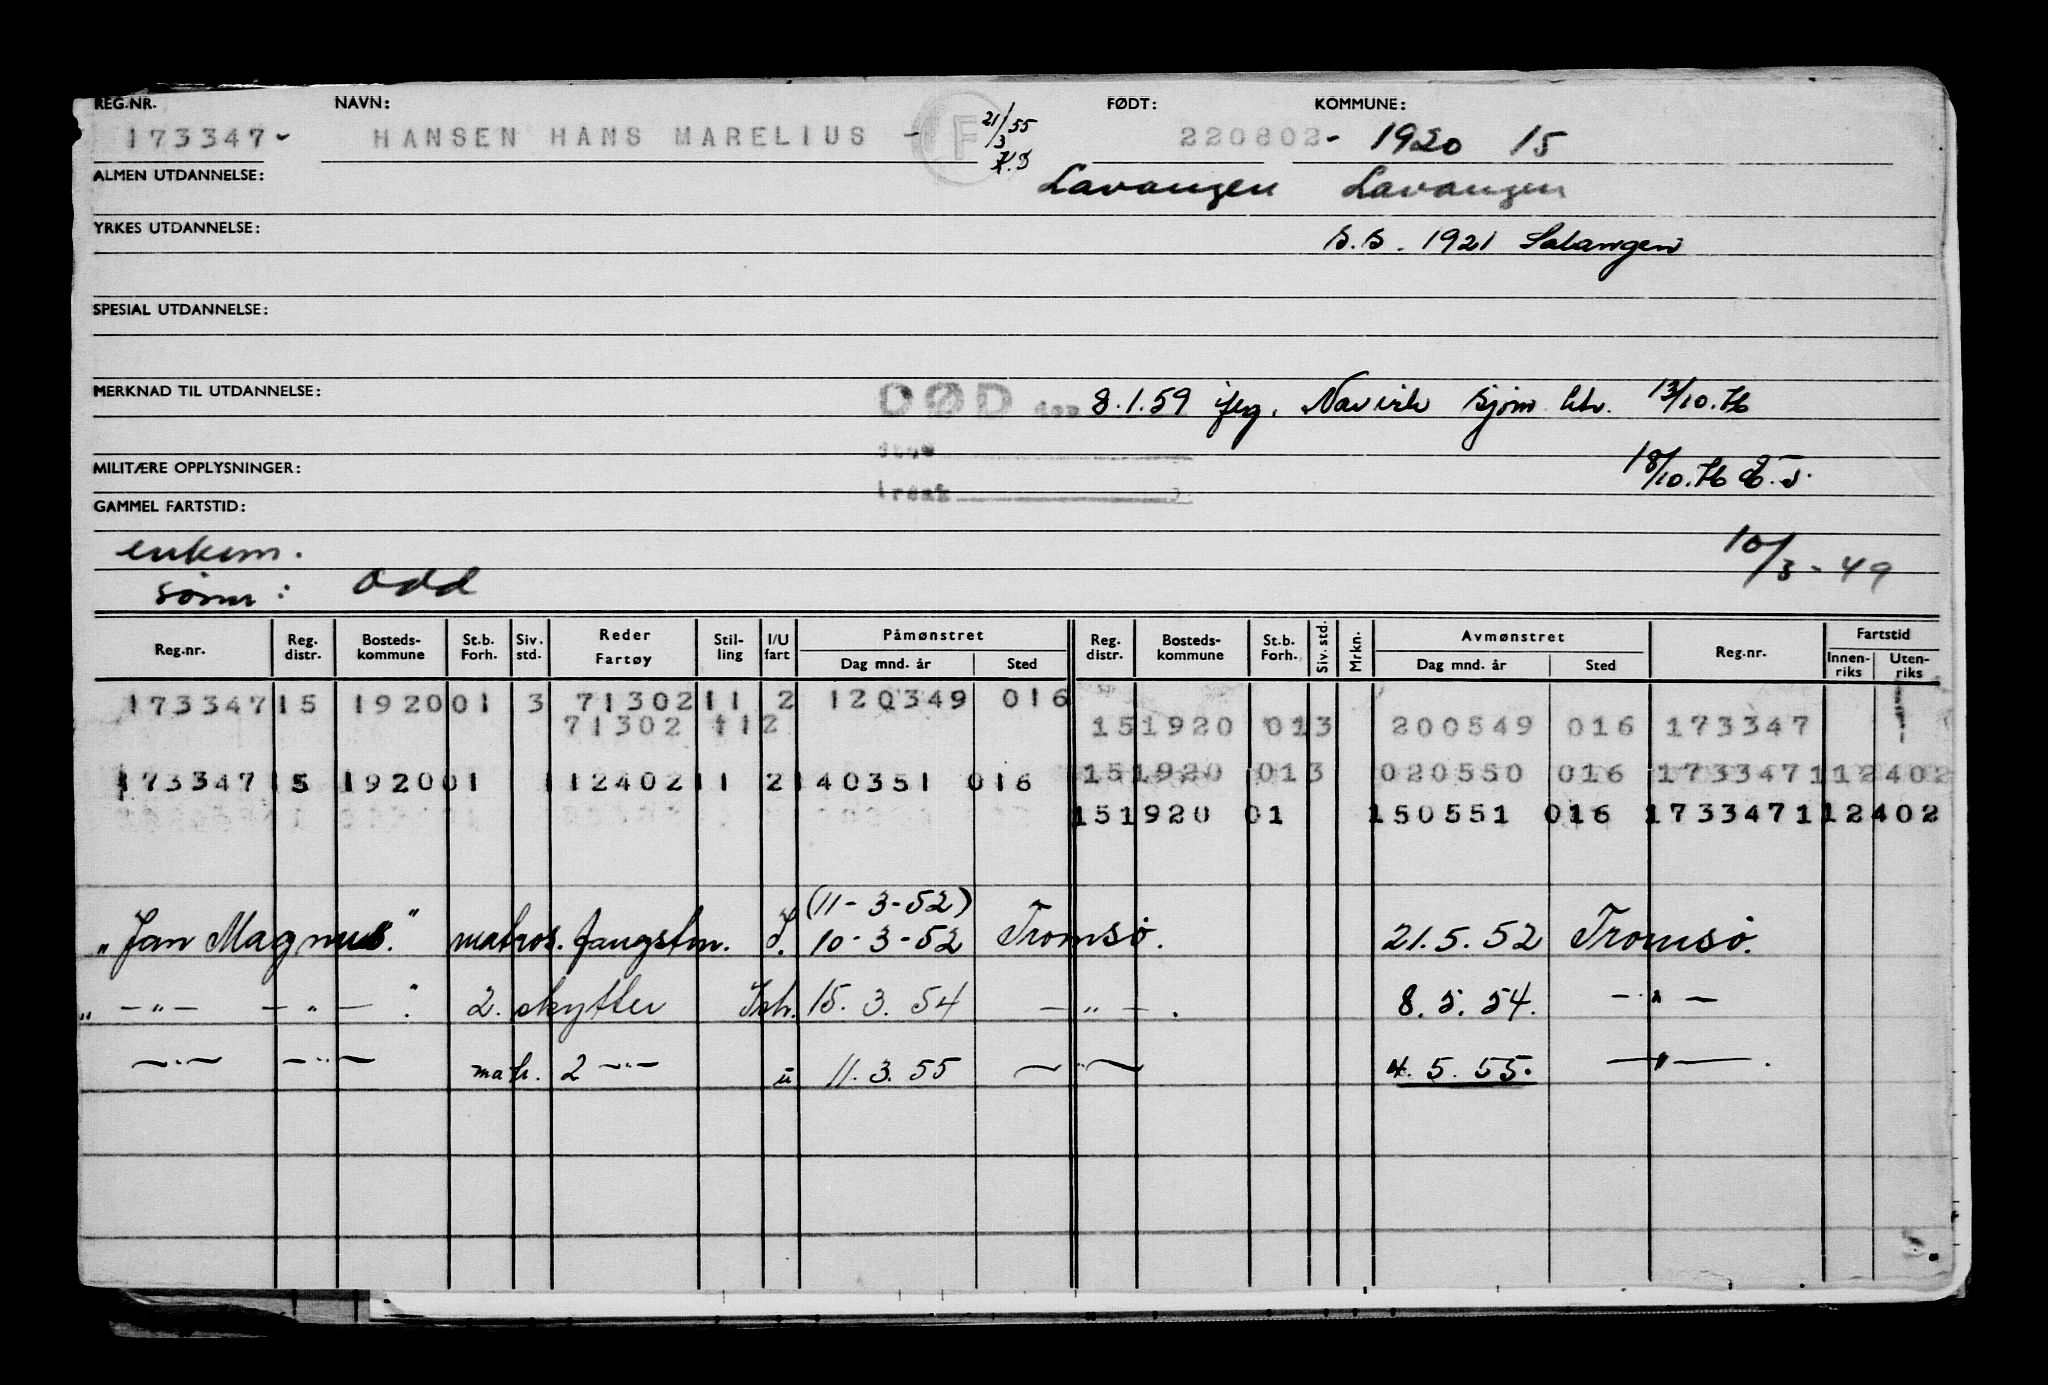 REG.NR. NAVN: FØDT: KOMMUNE:
173347- HANSEN HANS MARELIUS - F 21/3 55 220802- 1920 15
ALMEN UTDANNELSE: Lavangen Lavangen
YRKES UTDANNELSE: B.B. 1921 Salangen
SPESIAL UTDANNELSE:
MERKNAD TIL UTDANNELSE: DØD den 8.1.59 Navik 13/10.76
MILITÆRE OPPLYSNINGER: 18/10.76
GAMMEL FARTSTID:
enkem. 10/3-49
sønn: Odd
Reg.nr. Reg. distr. Bosteds-kommune St.b. Forh. Siv. std. Reder Fartøy Stil-ling I/U fart Påmønstret Dag mnd. år Sted Reg. distr. Bosteds-kommune St.b. Forh. Siv. std. Mrkn. Avmønstret Dag mnd. år Sted Reg.nr. Fartstid Innen-riks Uten-riks
173347 15 1920 01 3 71302 11 2 120349 016
71302 112 15 1920 013 200549 016 173347 1
15 1920 013 020550 016 173347 112402
173347 15 1920 01 112402 11 2 140351 016
15 1920 01 150551 016 173347 112402
(11-3-52)
"Jan Magnus." matros. fangstm. 10-3-52 Tromsø. 21.5.52 Tromsø.
" -"- -"- " 2. skytter Ish. 15.3.54 -"-. 8.5.54. -"-
-"- -"- matr. 2 -"- u 11.3.55 -"- 4.5.55. -"-.